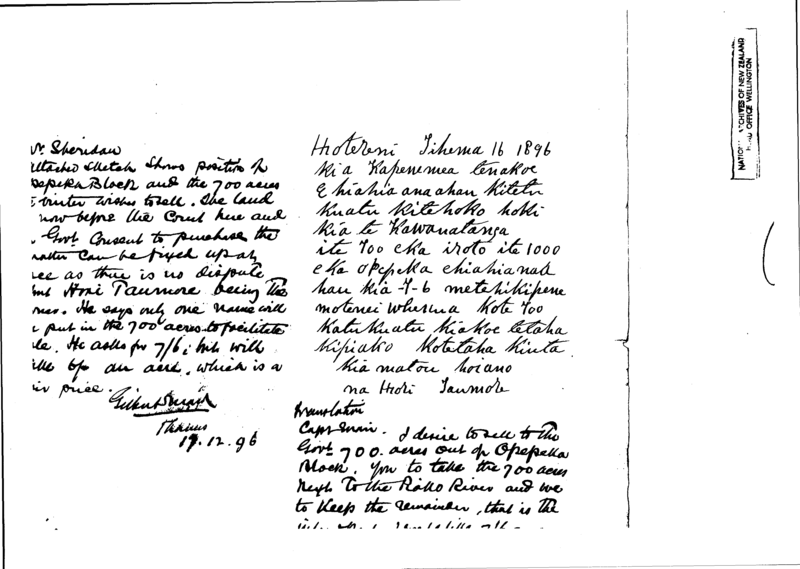 Mr Sheridan
Attached Sketch Shows position of
Opepeka Block and the 700 acres
writer wishes to sell. The land
now before the Court here and
Govt Consent to purchase the
matter Can be fixed up at
once as there is no dispute
Hori Taumore being the
owner. He says only one name will
be put in the 700 acres to facilitate
sale. He asks for 7/6 but will
take 6/- an acre, which is a
fair price.
Gilbert Mair
Thames
17.12.96
Hoterini Tihema 16 1896
Kia Kapenemea tenakoe
E hiahia ana ahau kitetu
kuatu kitehoko hoki
kia te Kawanatanga
ite 700 eka iroto ite 1000
eka Opepeka ehiahia naa
hau kia 7-6 metehikipene
motenei whenua Kote 700
Katukuatu kiakoe tetaha
kipiako Kotetaha kiuta
kia matou hoiano
na Hori Taumore
Translation
Capt Mair. I desire to sell to the
Govt 700. acres out of Opepeka
Block. You to take the 700 acres
next to the Piako River and we
to keep the remainder, that is the
NATIONAL ARCHIVES OF NEW ZEALAND
HEAD OFFICE WELLINGTON